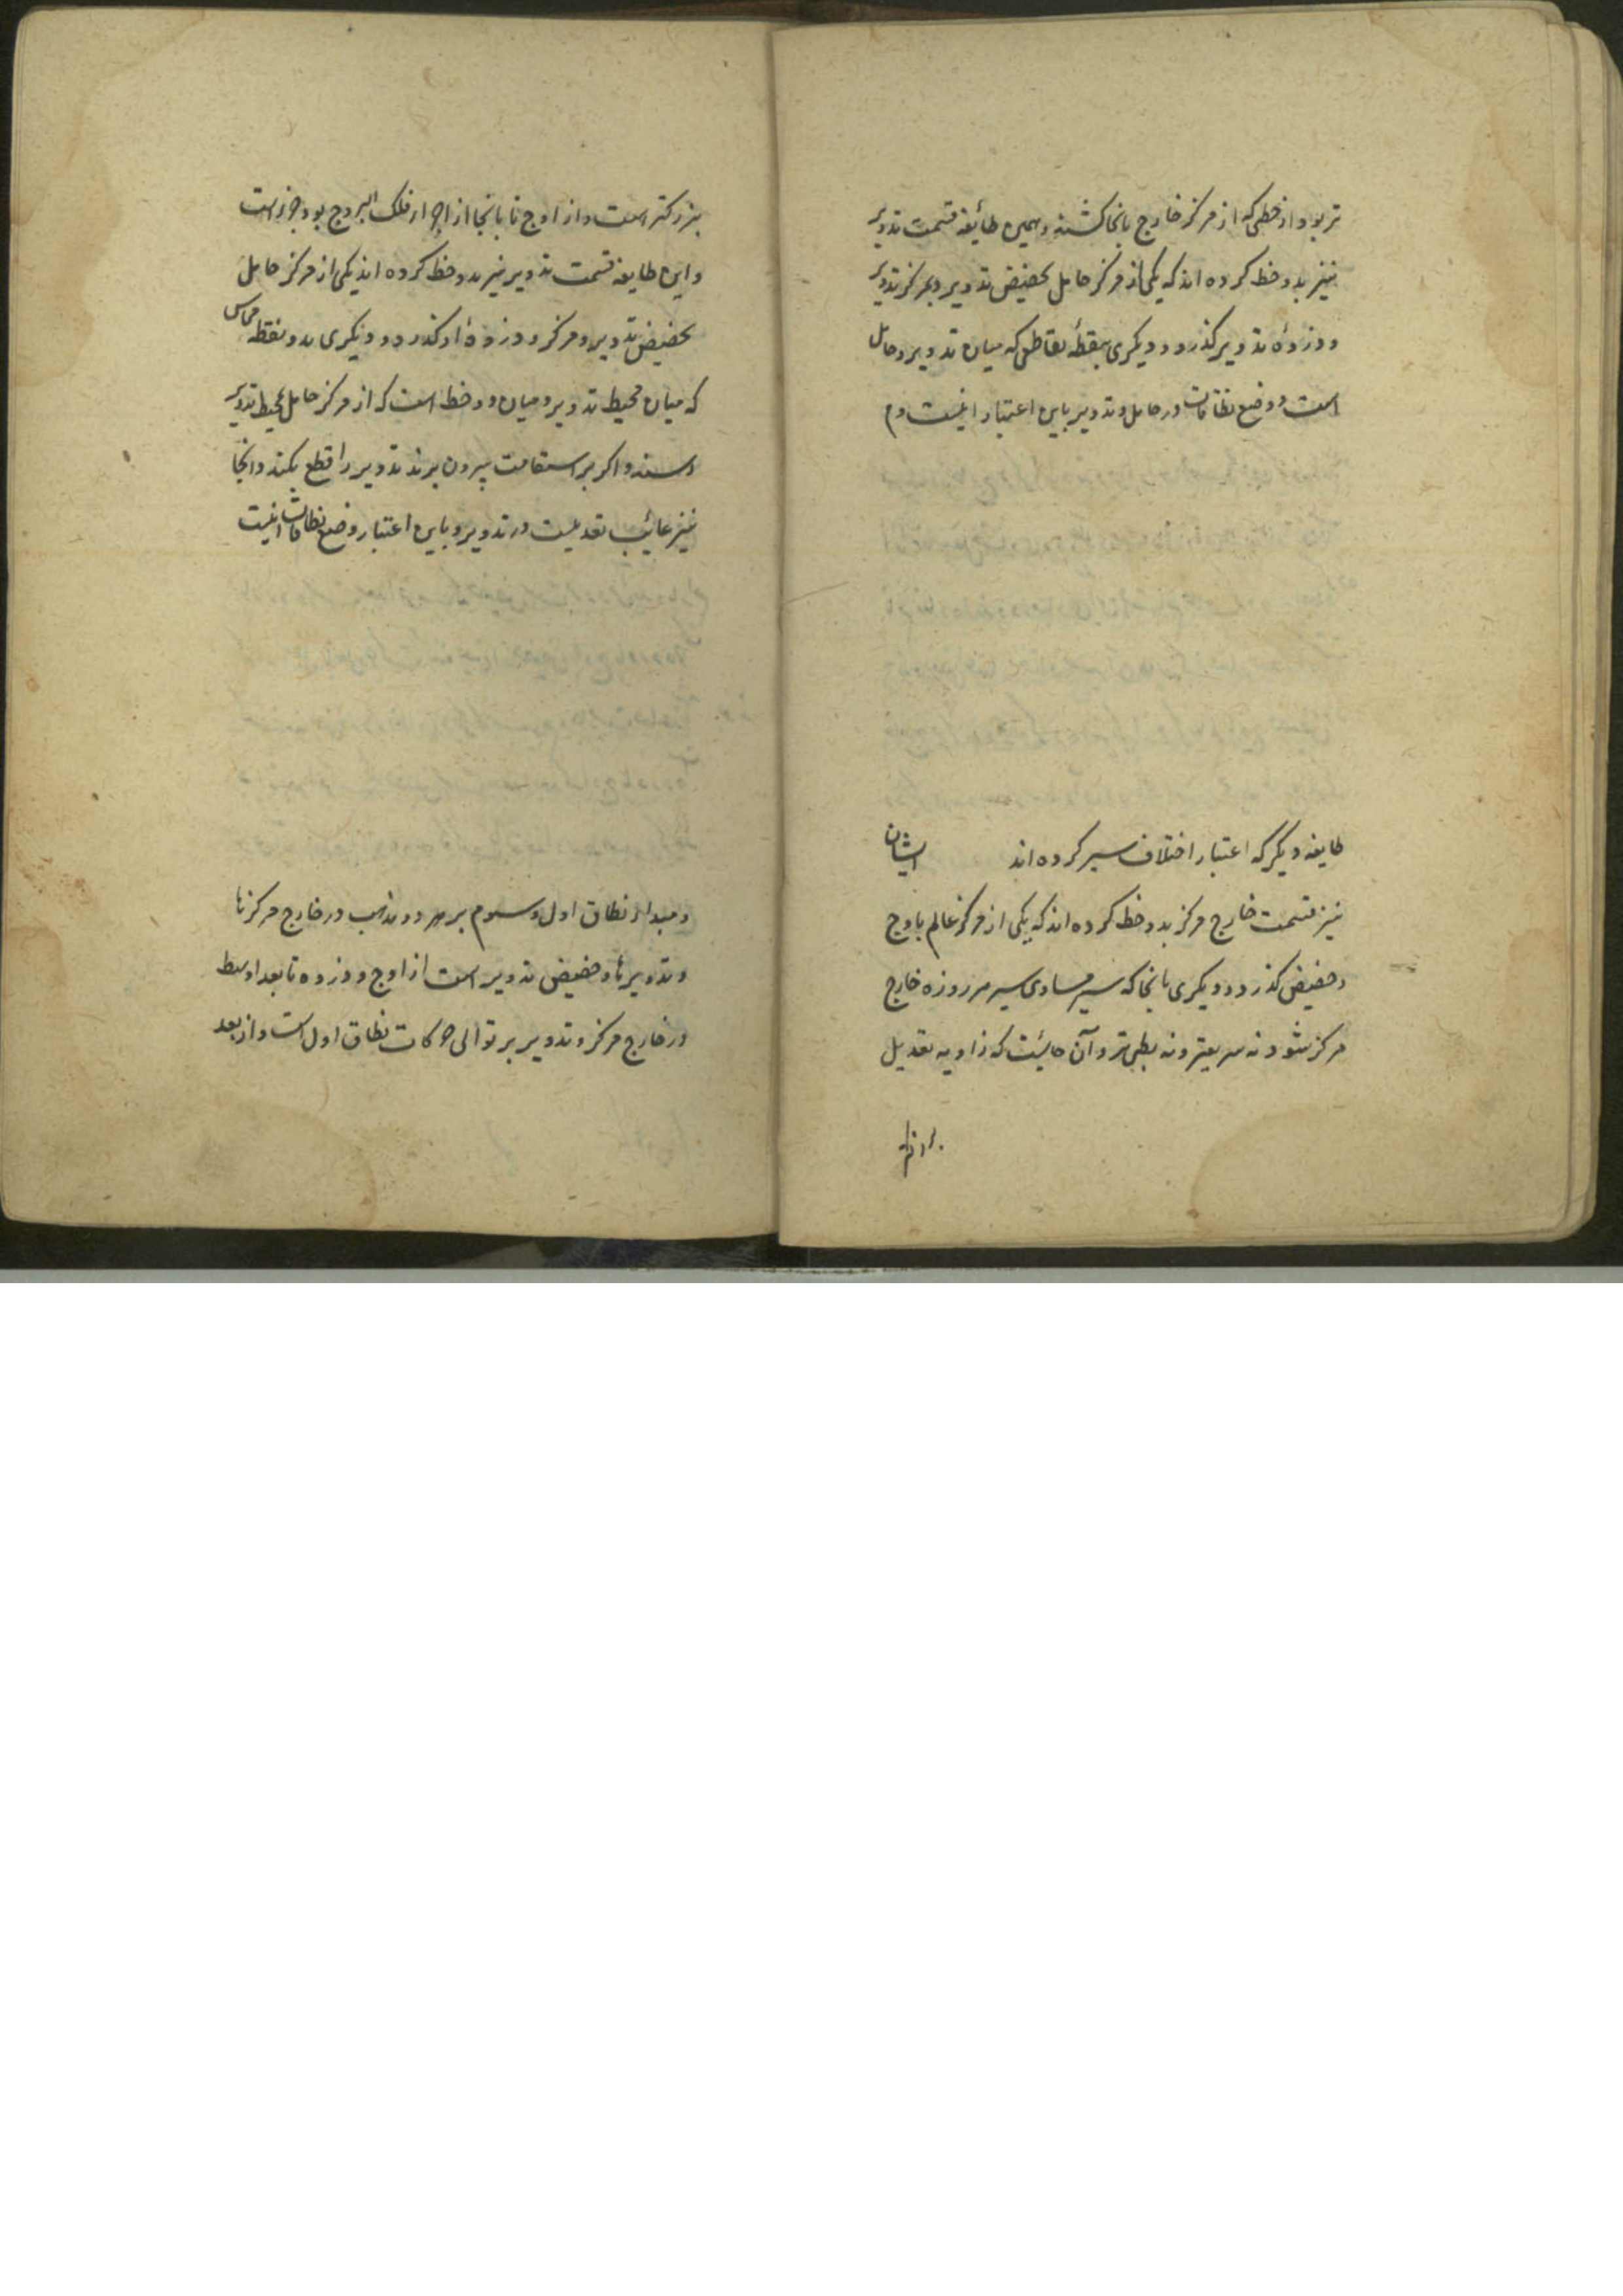 تر بود از خطی که از مرکز خارج بانجا کشند و همین طائفه قسمت تدویر
نیز بدو خط کرده اند که یکی از مرکز حامل بحضیض تدویر و بمرکز تدویر
و ذروهٔ تدویر گذرد و دیگری بنقطهٔ تقاطعی که میان تدویر و حامل
است و وضع نطاقات در حامل و تدویر باین اعتبار اینست و م
طایفه دیگر که اعتبار اختلاف سیر کرده اند ایشان
نیز قسمت خارج مرکز بدو خط کرده اند که یکی از مرکز عالم باوج
و حضیض گذرد و دیگری بانجا که سیر مساوی سیر مرروزه خارج
مرکز شود نه سریعتر و نه بطی تر و آن جائیست که زاویه تعدیل
بزرکتر
بزرکتر است و از اوج تا بانجا از اجزاء فلک البروج بود جزوست
و این طایفه قسمت تدویر نیز بدو خط کرده اند یکی از مرکز حامل
بحضیض تدویر و مرکز و ذروهٔ او گذرد و دیگری بدو نقطه مماس
که میان محیط تدویر و میان دو خط است که از مرکز حامل بمحیط تدویر
رسند و اگر بر استقامت بیرون برند تدویر را قطع بکنند و انجا
نیز غائیت تعدیلست در تدویر و باین اعتبار وضع نطاقات اینست
و مبداء نطاق اول و سیوم بر هر دو مذهب در خارج مرکزها
و تدویرها و حضیض تدویر است از اوج و ذروه تا بعد اوسط
در خارج مرکز و تدویر بر توالی حرکات نطاق اول است و از بعد